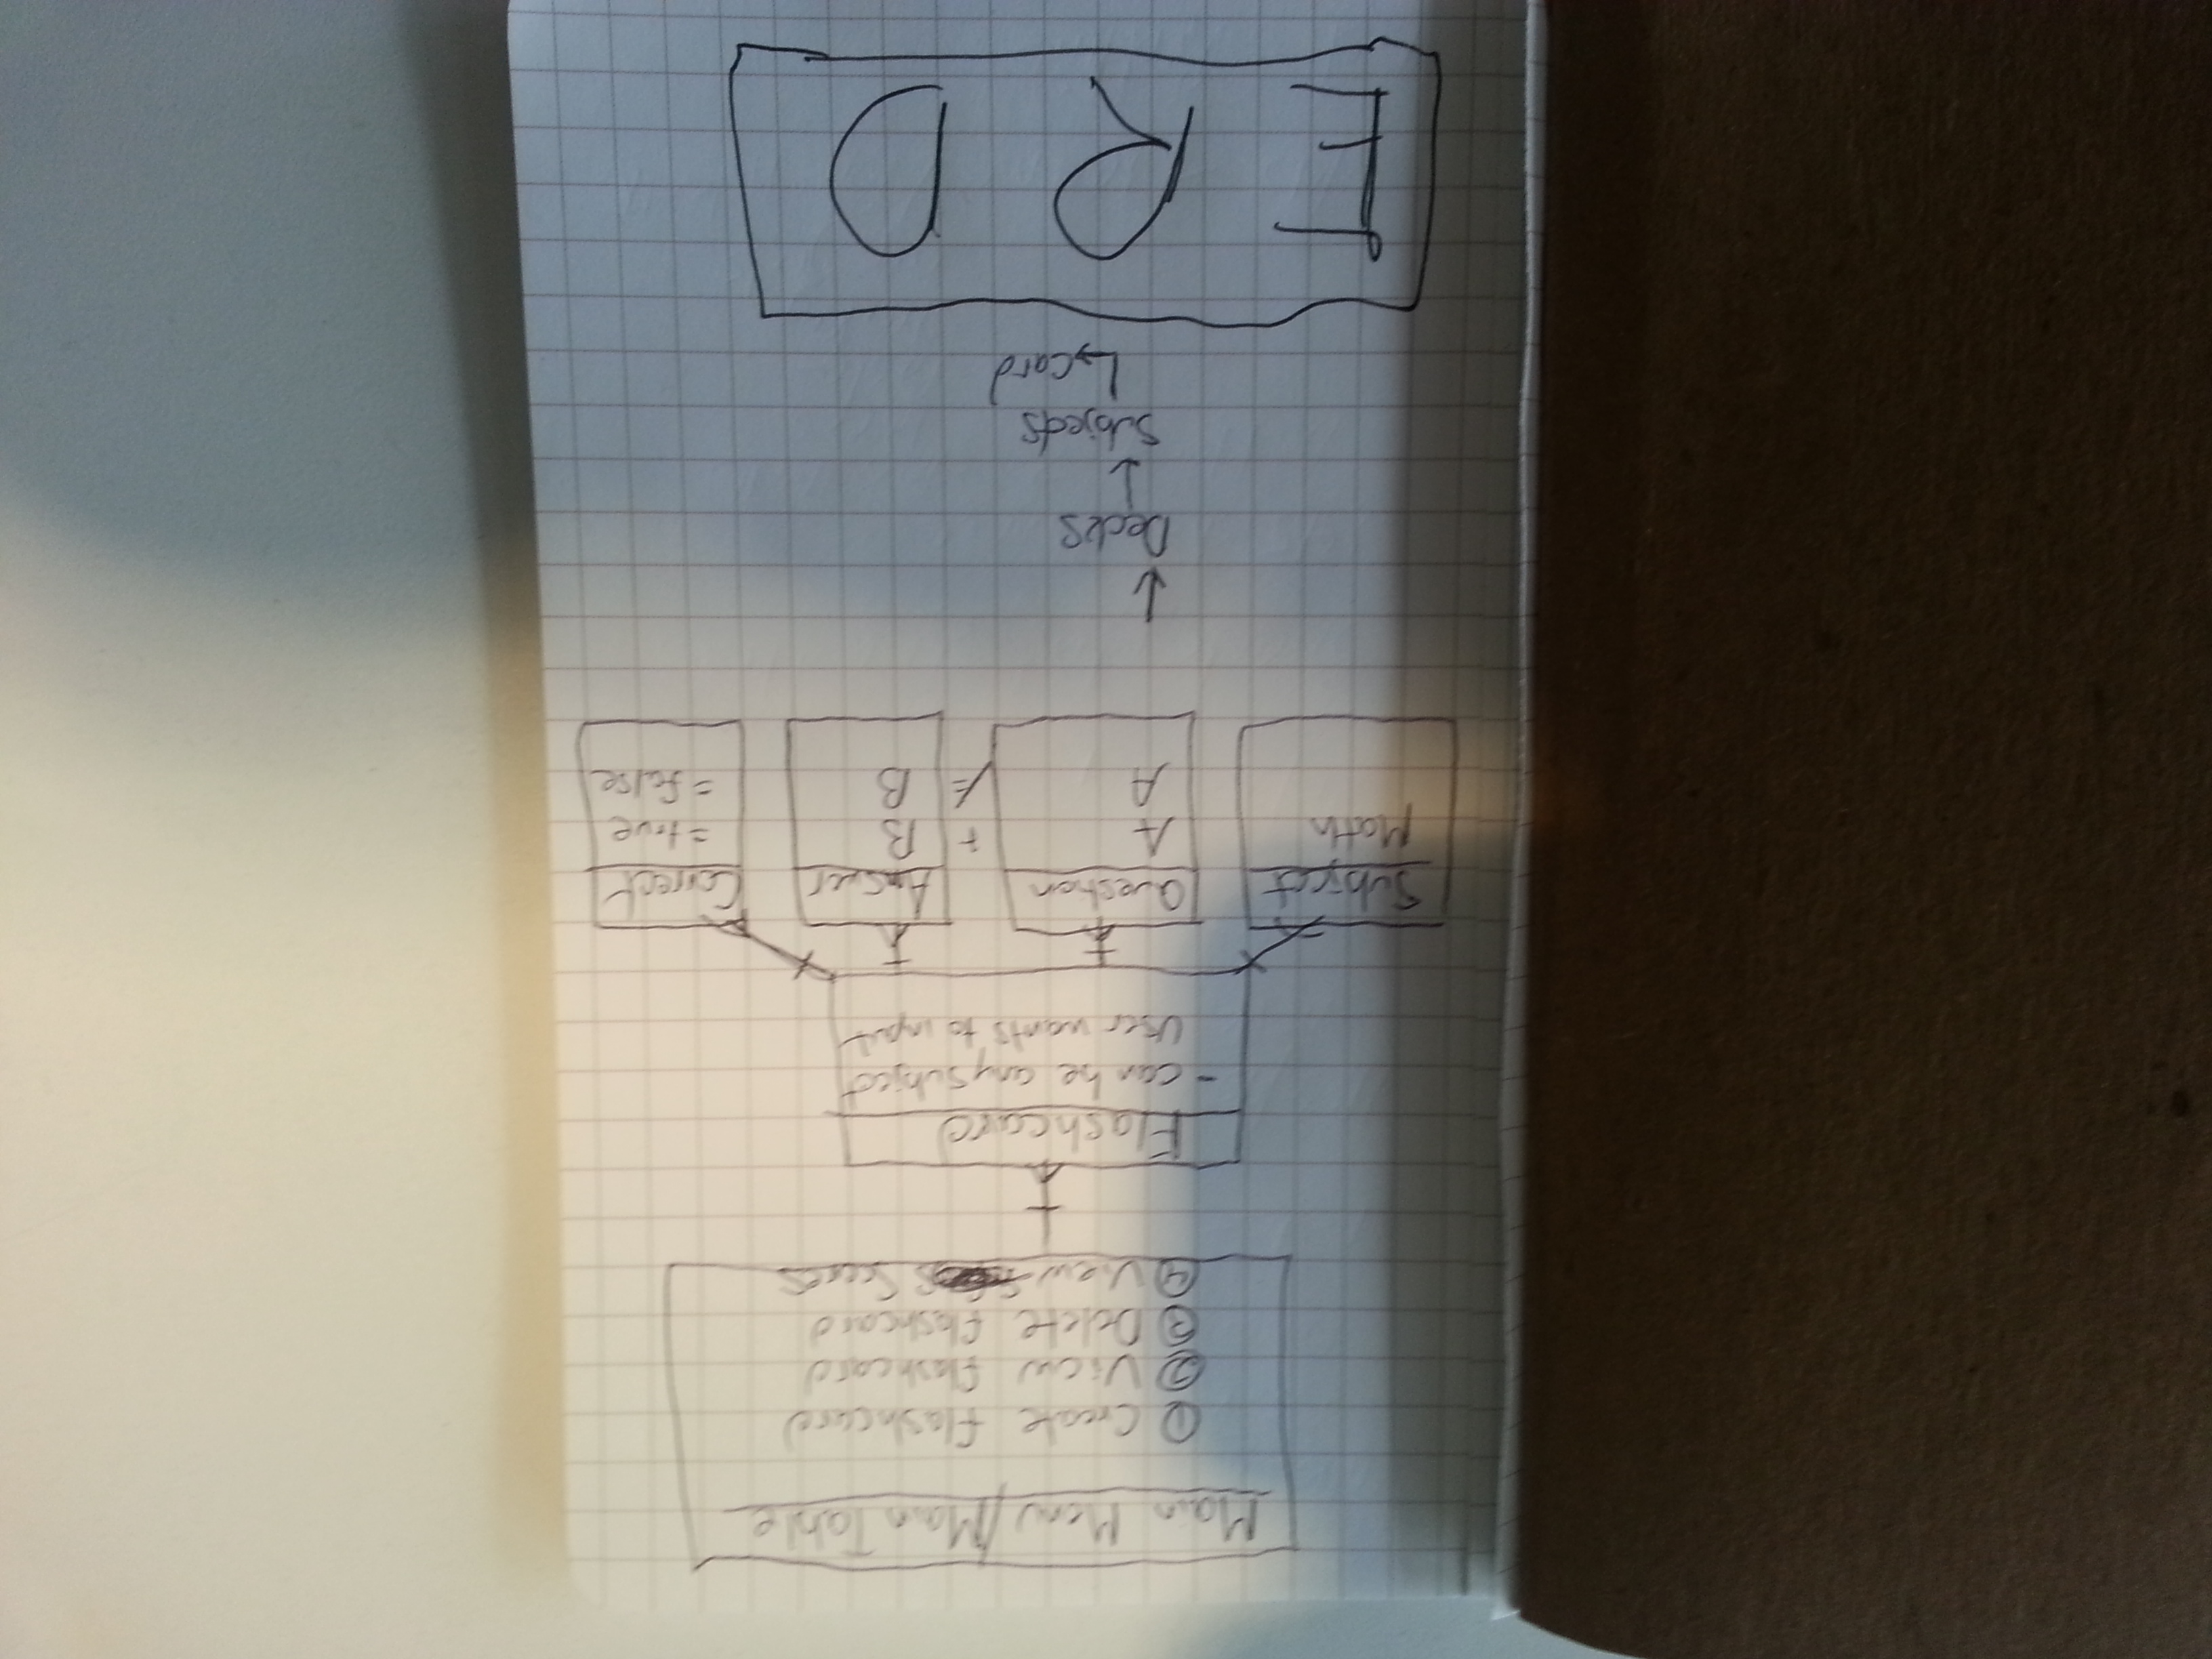 Main Menu/Main Table
① Create flashcard
② View flashcard
③ Delete flashcard
④ View Scores
Flashcard
- can be any subject
User wants to input
Subject Question Answer Correct
Math A + B = true
A ≠ B = false
↓
Decks
↓
Subjects
↳ card
E R D